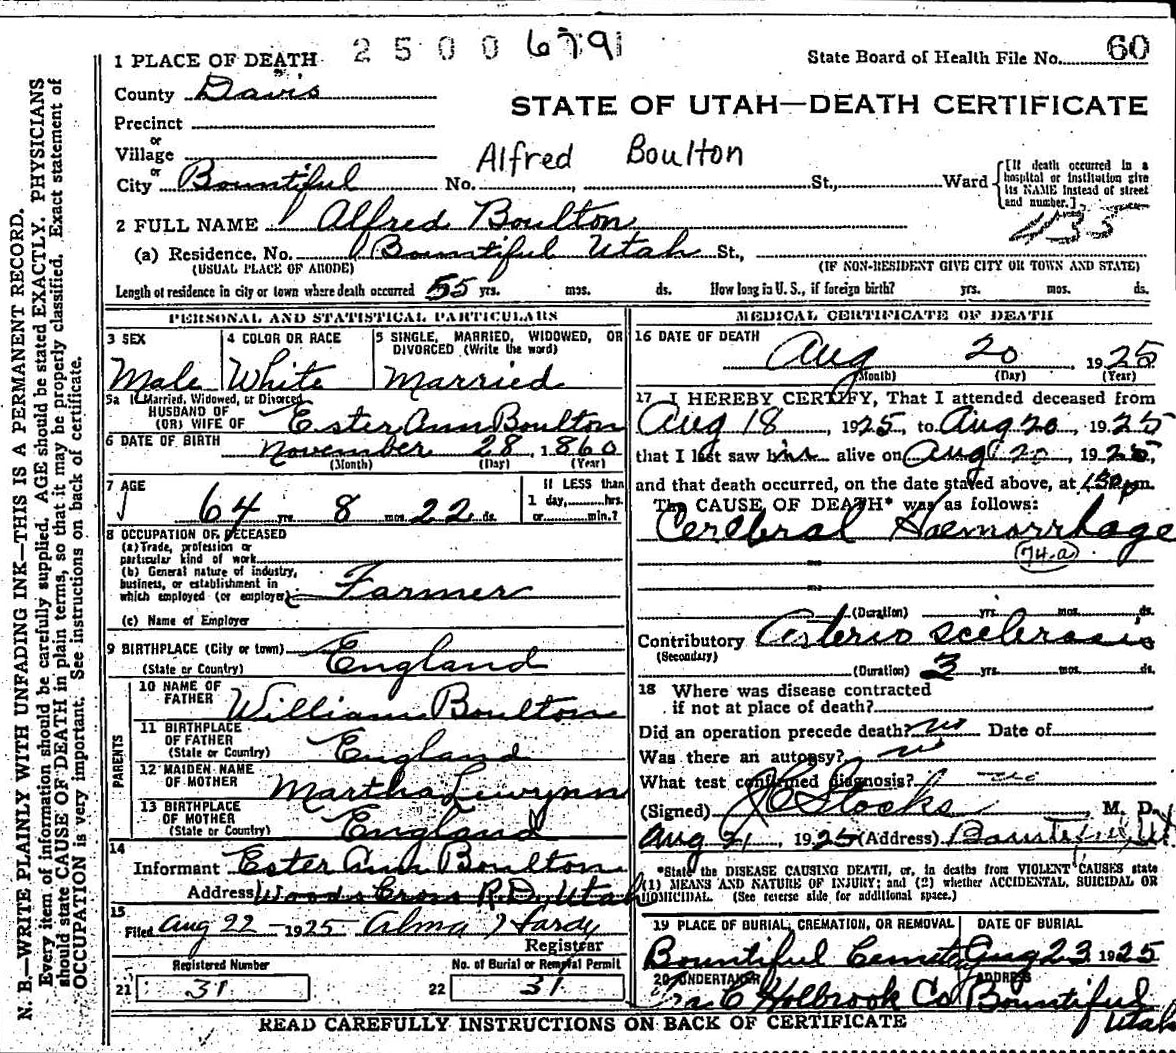 2 5 0 0 6791
State Board of Health File No. 60
1 PLACE OF DEATH
County Davis
STATE OF UTAH—DEATH CERTIFICATE
Precinct
or
Village
Alfred Boulton
or
City Bountiful No. , St., Ward
[If death occurred in a hospital or institution give its NAME instead of street and number.]
435
2 FULL NAME Alfred Boulton
(a) Residence. No. Bountiful Utah St.,
(USUAL PLACE OF ABODE) (IF NON-RESIDENT GIVE CITY OR TOWN AND STATE)
Length of residence in city or town where death occurred 55 yrs. mos. ds. How long in U. S., if foreign birth? yrs. mos. ds.
PERSONAL AND STATISTICAL PARTICULARS
3 SEX
Male
4 COLOR OR RACE
White
5 SINGLE, MARRIED, WIDOWED, OR DIVORCED (Write the word)
Married
5a If Married, Widowed, or Divorced
HUSBAND OF
(OR) WIFE OF Ester Ann Boulton
6 DATE OF BIRTH November 28, 1860
(Month) (Day) (Year)
7 AGE
64 yrs. 8 mos. 22 ds.
If LESS than
1 day, hrs.
or min.?
8 OCCUPATION OF DECEASED
(a) Trade, profession or
particular kind of work
(b) General nature of industry,
business, or establishment in
which employed (or employer) Farmer
(c) Name of Employer
9 BIRTHPLACE (City or town)
(State or Country) England
PARENTS
10 NAME OF
FATHER William Boulton
11 BIRTHPLACE
OF FATHER
(State or Country) England
12 MAIDEN NAME
OF MOTHER Martha Lewynn
13 BIRTHPLACE
OF MOTHER
(State or Country) England
14
Informant Ester Ann Boulton
Address Woods Cross R.D., Utah
15
Filed Aug 22 — 1925 Alma Hardy
Registrar
Registered Number
21 31
No. of Burial or Removal Permit
22 31
MEDICAL CERTIFICATE OF DEATH
16 DATE OF DEATH
Aug 20, 1925
(Month) (Day) (Year)
17 I HEREBY CERTIFY, That I attended deceased from
Aug 18, 1925, to Aug 20, 1925
that I last saw him alive on Aug 20, 1925,
and that death occurred, on the date stated above, at 1:50 p m.
The CAUSE OF DEATH* was as follows:
Cerebral Haemorrhage
74-a
(Duration) yrs. mos. ds.
Contributory Arterio scelerosis
(Secondary)
(Duration) 3 yrs. mos. ds.
18 Where was disease contracted
if not at place of death?
Did an operation precede death? no Date of
Was there an autopsy? no
What test confirmed diagnosis?
(Signed) Stocks M. D.
Aug 21, 1925 (Address) Bountiful, Ut.
*State the DISEASE CAUSING DEATH, or, in deaths from VIOLENT CAUSES state
(1) MEANS AND NATURE OF INJURY; and (2) whether ACCIDENTAL, SUICIDAL OR
HOMICIDAL. (See reverse side for additional space.)
19 PLACE OF BURIAL, CREMATION, OR REMOVAL DATE OF BURIAL
Bountiful Cemetery Aug 23 1925
20 UNDERTAKER ADDRESS
Holbrook Co Bountiful
Utah
READ CAREFULLY INSTRUCTIONS ON BACK OF CERTIFICATE
N. B.—WRITE PLAINLY WITH UNFADING INK—THIS IS A PERMANENT RECORD.
Every item of information should be carefully supplied. AGE should be stated EXACTLY. PHYSICIANS
should state CAUSE OF DEATH in plain terms, so that it may be properly classified. Exact statement of
OCCUPATION is very important. See instructions on back of certificate.